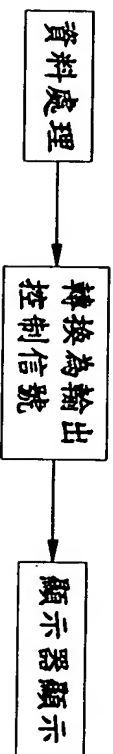 資料處理
轉換為輸出
控制信號
顯示器顯示